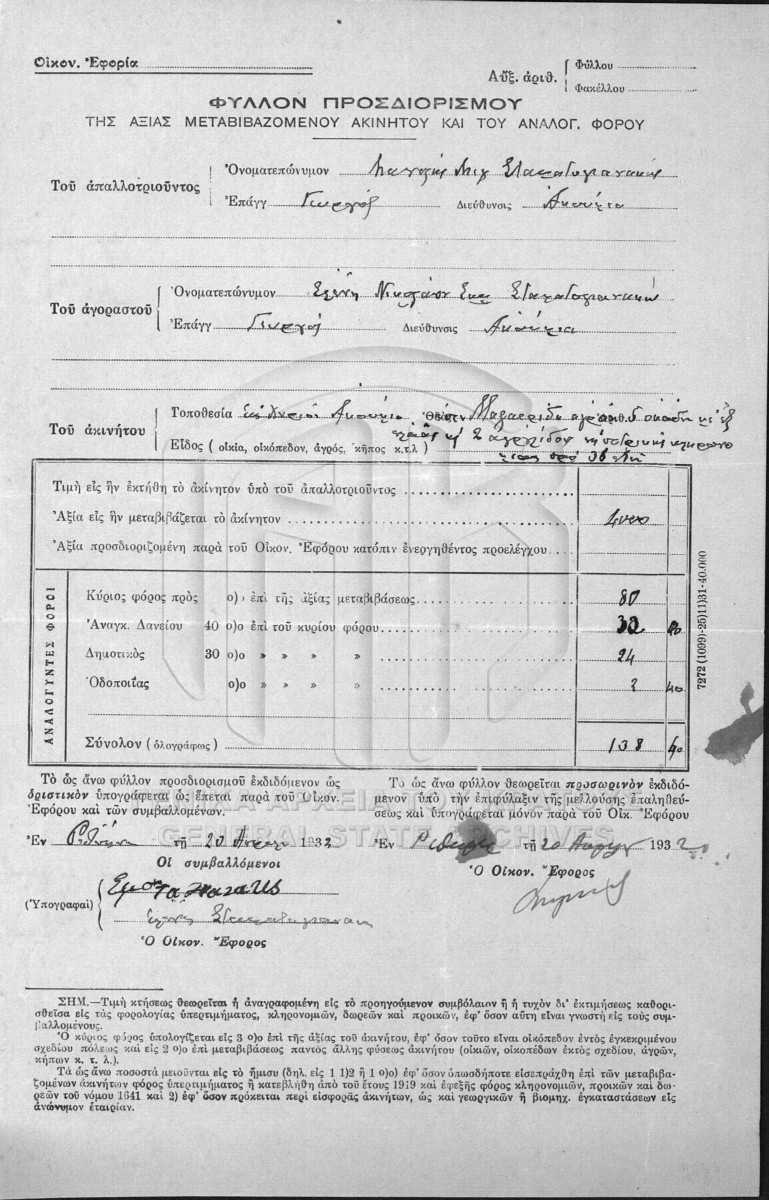 Οἰκον. Ἐφορία
Αὔξ. ἀριθ. Φύλλου
Φακέλλου
ΦΥΛΛΟΝ ΠΡΟΣΔΙΟΡΙΣΜΟΥ
ΤΗΣ ΑΞΙΑΣ ΜΕΤΑΒΙΒΑΖΟΜΕΝΟΥ ΑΚΙΝΗΤΟΥ ΚΑΙ ΤΟΥ ΑΝΑΛΟΓ. ΦΟΡΟΥ
Τοῦ ἀπαλλοτριοῦντος
Ὀνοματεπώνυμον
Ἐπάγγ Γεωργός Διεύθυνσις Ἀκούμια
Τοῦ ἀγοραστοῦ
Ὀνοματεπώνυμον Ἑλένη
Ἐπάγγ Γεωργός Διεύθυνσις Ἀκούμια
Τοῦ ἀκινήτου
Τοποθεσία Ἀκούμια
Εἶδος ( οἰκία, οἰκόπεδον, ἀγρός, κῆπος κ.τ.λ )
Τιμὴ εἰς ἣν ἐκτήθη τὸ ἀκίνητον ὑπὸ τοῦ ἀπαλλοτριοῦντος
Ἀξία εἰς ἣν μεταβιβάζεται τὸ ἀκίνητον 4000
Ἀξία προσδιοριζομένη παρὰ τοῦ Οἰκον. Ἐφόρου κατόπιν ἐνεργηθέντος προελέγχου
ΑΝΑΛΟΓΟΥΝΤΕΣ ΦΟΡΟΙ
Κύριος φόρος πρὸς ο)ο ἐπὶ τῆς ἀξίας μεταβιβάσεως 80
Ἀναγκ. Δανείου 40 ο)ο ἐπὶ τοῦ κυρίου φόρου 32
Δημοτικὸς 30 ο)ο » » » 24
Ὁδοποιΐας ο)ο » » » 2 40
Σύνολον ( ὁλογράφως ) 138 40
7272 (1099)-25)11)31-40.000
Τὸ ὡς ἄνω φύλλον προσδιορισμοῦ ἐκδιδόμενον ὡς
ὁριστικὸν ὑπογράφεται ὡς ἕπεται παρὰ τοῦ Οἰκον.
Ἐφόρου καὶ τῶν συμβαλλομένων.
Ἐν Ρεθύμνῃ τῇ 20 1932
Οἱ συμβαλλόμενοι
(Ὑπογραφαὶ)
Ὁ Οἰκον. Ἔφορος
Τὸ ὡς ἄνω φύλλον θεωρεῖται προσωρινὸν ἐκδιδό-
μενον ὑπὸ τὴν ἐπιφύλαξιν τῆς μελλούσης ἐπαληθεύ-
σεως καὶ ὑπογράφεται μόνον παρὰ τοῦ Οἰκ. Ἐφόρου
Ἐν τῇ 20 1932
Ὁ Οἰκον. Ἔφορος
ΓΕΝΙΚΑ ΑΡΧΕΙΑ ΤΟΥ ΚΡΑΤΟΥΣ
GENERAL STATE ARCHIVES
ΣΗΜ.—Τιμὴ κτήσεως θεωρεῖται ἡ ἀναγραφομένη εἰς τὸ προηγούμενον συμβόλαιον ἢ ἡ τυχὸν δι' ἐκτιμήσεως καθορι-
σθεῖσα εἰς τὰς φορολογίας ὑπερτιμήματος, κληρονομιῶν, δωρεῶν καὶ προικῶν, ἐφ' ὅσον αὕτη εἶναι γνωστὴ εἰς τοὺς συμ-
βαλλομένους.
Ὁ κύριος φόρος ὑπολογίζεται εἰς 3 ο)ο ἐπὶ τῆς ἀξίας τοῦ ἀκινήτου, ἐφ' ὅσον τοῦτο εἶναι οἰκόπεδον ἐντὸς ἐγκεκριμένου
σχεδίου πόλεως καὶ εἰς 2 ο)ο ἐπὶ μεταβιβάσεως παντὸς ἄλλης φύσεως ἀκινήτου (οἰκιῶν, οἰκοπέδων ἐκτὸς σχεδίου, ἀγρῶν,
κήπων κ. τ. λ.).
Τὰ ὡς ἄνω ποσοστὰ μειοῦνται εἰς τὸ ἥμισυ (δηλ. εἰς 1 1)2 ἢ 1 ο)ο) ἐφ' ὅσον ὁπωσδήποτε εἰσεπράχθη ἐπὶ τῶν μεταβιβα-
ζομένων ἀκινήτων φόρος ὑπερτιμήματος ἢ κατεβλήθη ἀπὸ τοῦ ἔτους 1919 καὶ ἐφεξῆς φόρος κληρονομιῶν, προικῶν καὶ δω-
ρεῶν τοῦ νόμου 1641 καὶ 2) ἐφ' ὅσον πρόκειται περὶ εἰσφορᾶς ἀκινήτου, ὡς καὶ γεωργικῶν ἢ βιομηχ. ἐγκαταστάσεων εἰς
ἀνώνυμον ἑταιρίαν.